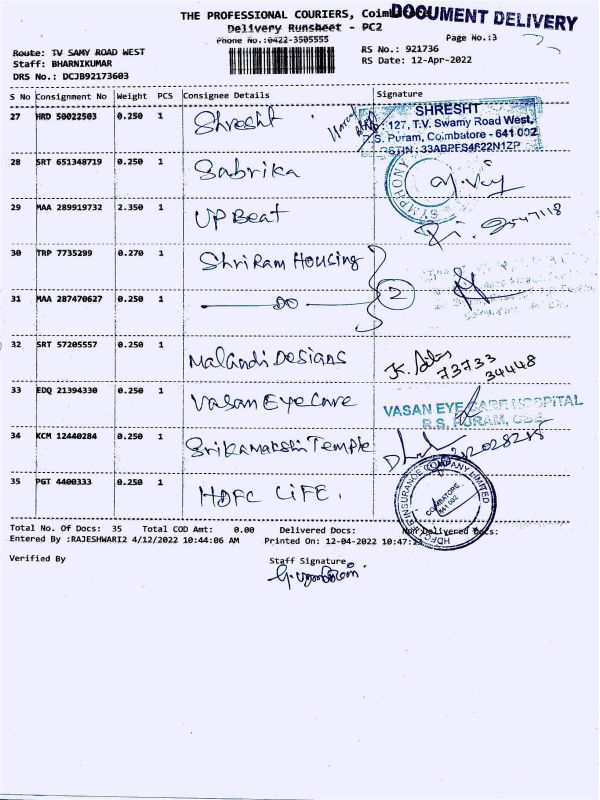 THE PROFESSIONAL COURIERS, Coimbatore
DOCUMENT DELIVERY
Delivery Runsheet - PC2
Phone No.:0422-3505555
Page No.:3
Route: TV SAMY ROAD WEST
RS No.: 921736
Staff: BHARNIKUMAR
RS Date: 12-Apr-2022
DRS No.: DCJB92173603
S No Consignment No Weight PCS Consignee Details Signature
27 HRD 50022503 0.250 1 Shresht
SHRESHT
127, T.V. Swamy Road West,
R.S. Puram, Coimbatore - 641 002
GSTIN : 33ABPFS4622N1ZP
28 SRT 651348719 0.250 1 Sabrika
SYMPHONY
29 MAA 289919732 2.350 1 UP Beat
30 TRP 7735299 0.270 1 Shri Ram Housing
2
31 MAA 287470627 0.250 1 DO
32 SRT 57205557 0.250 1 Malandi Designs
73733
34448
33 EDQ 21394330 0.250 1 Vasan Eye Care
VASAN EYE CARE HOSPITAL
R.S. PURAM, CBE
34 KCM 12440284 0.250 1 Srikamakshi Temple
35 PGT 4400333 0.250 1 HDFC LiFE.
HDFC LIFE INSURANCE COMPANY LIMITED
COIMBATORE
641 002
Total No. Of Docs: 35 Total COD Amt: 0.00 Delivered Docs: Non Delivered Docs:
Entered By :RAJESHWARI2 4/12/2022 10:44:06 AM Printed On: 12-04-2022 10:47:
Verified By Staff Signature